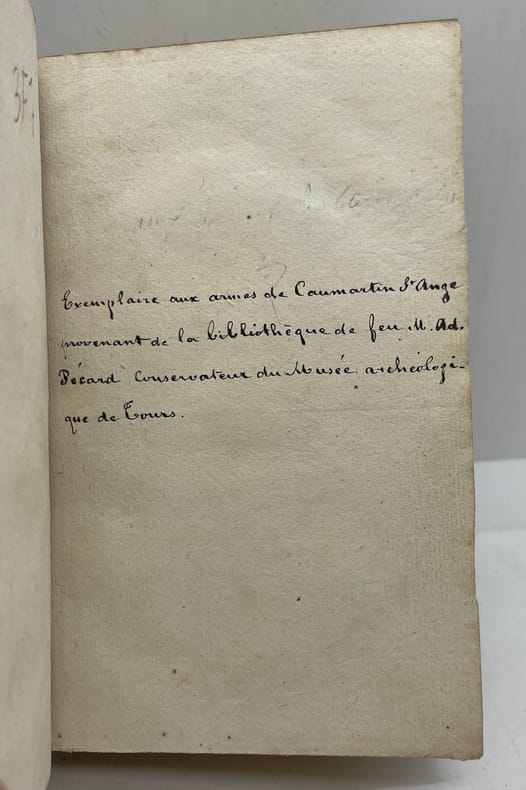 Exemplaire aux armes de Caumartin St Ange
provenant de la bibliothèque de feu M. Ad.
Pécard Conservateur du Musée archéologi-
que de Tours.